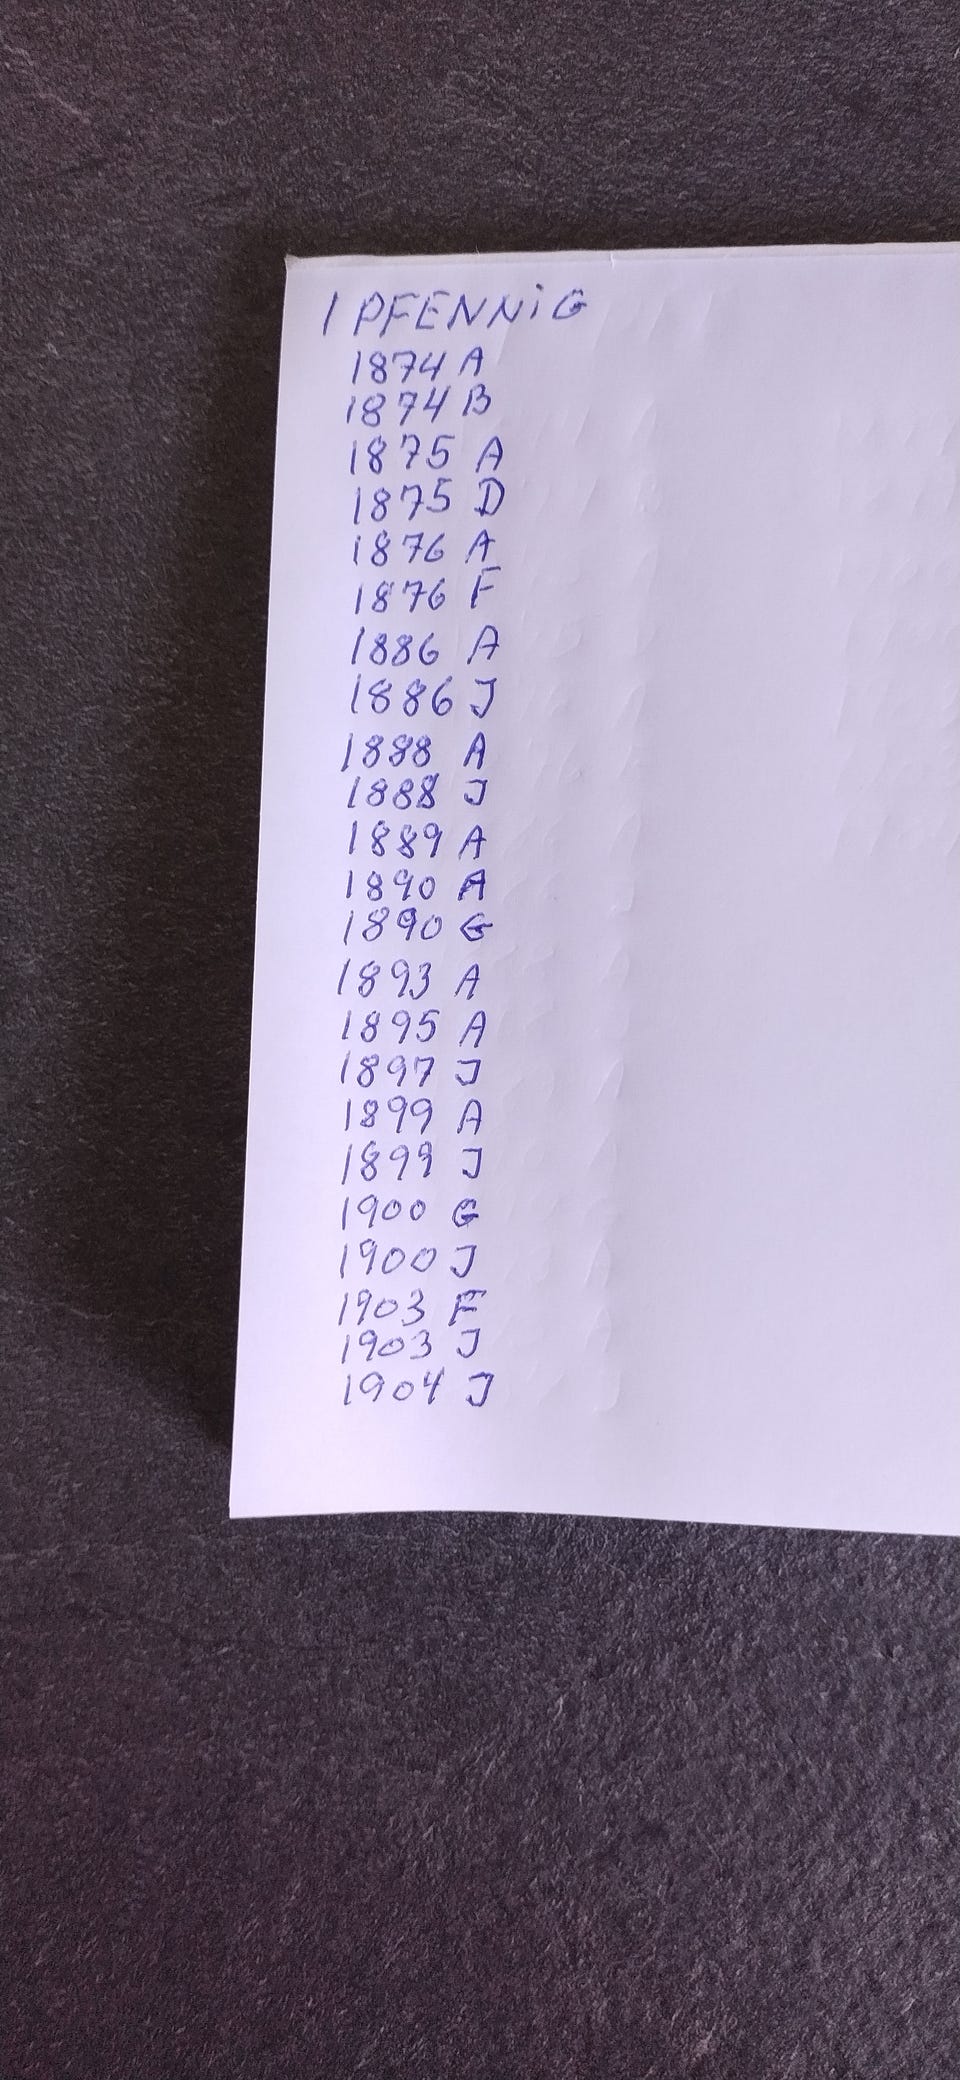 1 PFENNiG
1874 A
1874 B
1875 A
1875 D
1876 A
1876 F
1886 A
1886 J
1888 A
1888 J
1889 A
1890 A
1890 G
1893 A
1895 A
1897 J
1899 A
1899 J
1900 G
1900 J
1903 F
1903 J
1904 J